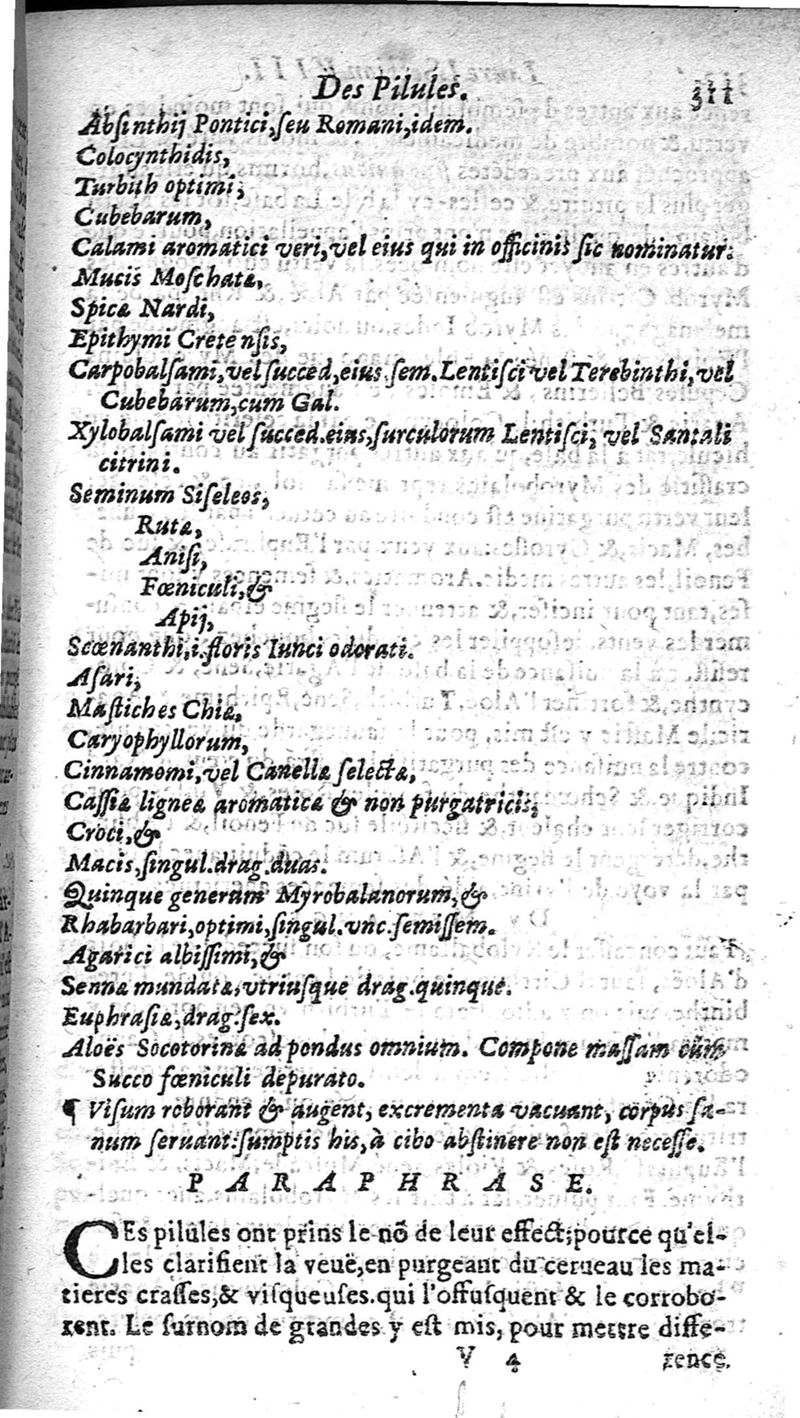 Des Pilules. 311
Absinthij Pontici, seu Romani, idem.
Colocynthidis,
Turbith optimi,
Cubebarum,
Calami aromatici veri, vel eius qui in officinis sic nominatur.
Mucis Moschatæ,
Spicæ Nardi,
Epithymi Cretensis,
Carpobalsami, vel succed, eius. sem. Lentisci vel Terebinthi, vel
Cubebarum, cum Gal.
Xylobalsami vel succed. eius, surculorum Lentisci, vel Santali
citrini.
Seminum Siseleos,
Rutæ,
Anisi,
Fœniculi, &
Apij,
Scœnanthi, i. floris Iunci odorati.
Asari,
Mastiches Chiæ,
Caryophyllorum,
Cinnamomi, vel Canellæ selectæ,
Cassiæ ligneæ aromaticæ & non purgatricis,
Croci, &
Macis, singul. drag. duas.
Quinque generum Myrobalanorum, &
Rhabarbari, optimi, singul. vnc. semissem.
Agarici albissimi, &
Sennæ mundatæ, vtriusque drag. quinque.
Euphrasiæ, drag. sex.
Aloës Socotorinæ ad pondus omnium. Compone massam cum
Succo fœniculi depurato.
¶ Visum roborant & augent, excrementa vacuant, corpus sa-
num seruant: sumptis his, à cibo abstinere non est necesse.
PARAPHRASE.
CEs pilules ont prins le nõ de leur effect; pource qu'el-
les clarifient la veuë, en purgeant du cerueau les ma-
tieres crasses, & visqueuses. qui l'offusquent & le corrobo-
rent. Le surnom de grandes y est mis, pour mettre diffe-
V 4 rence.